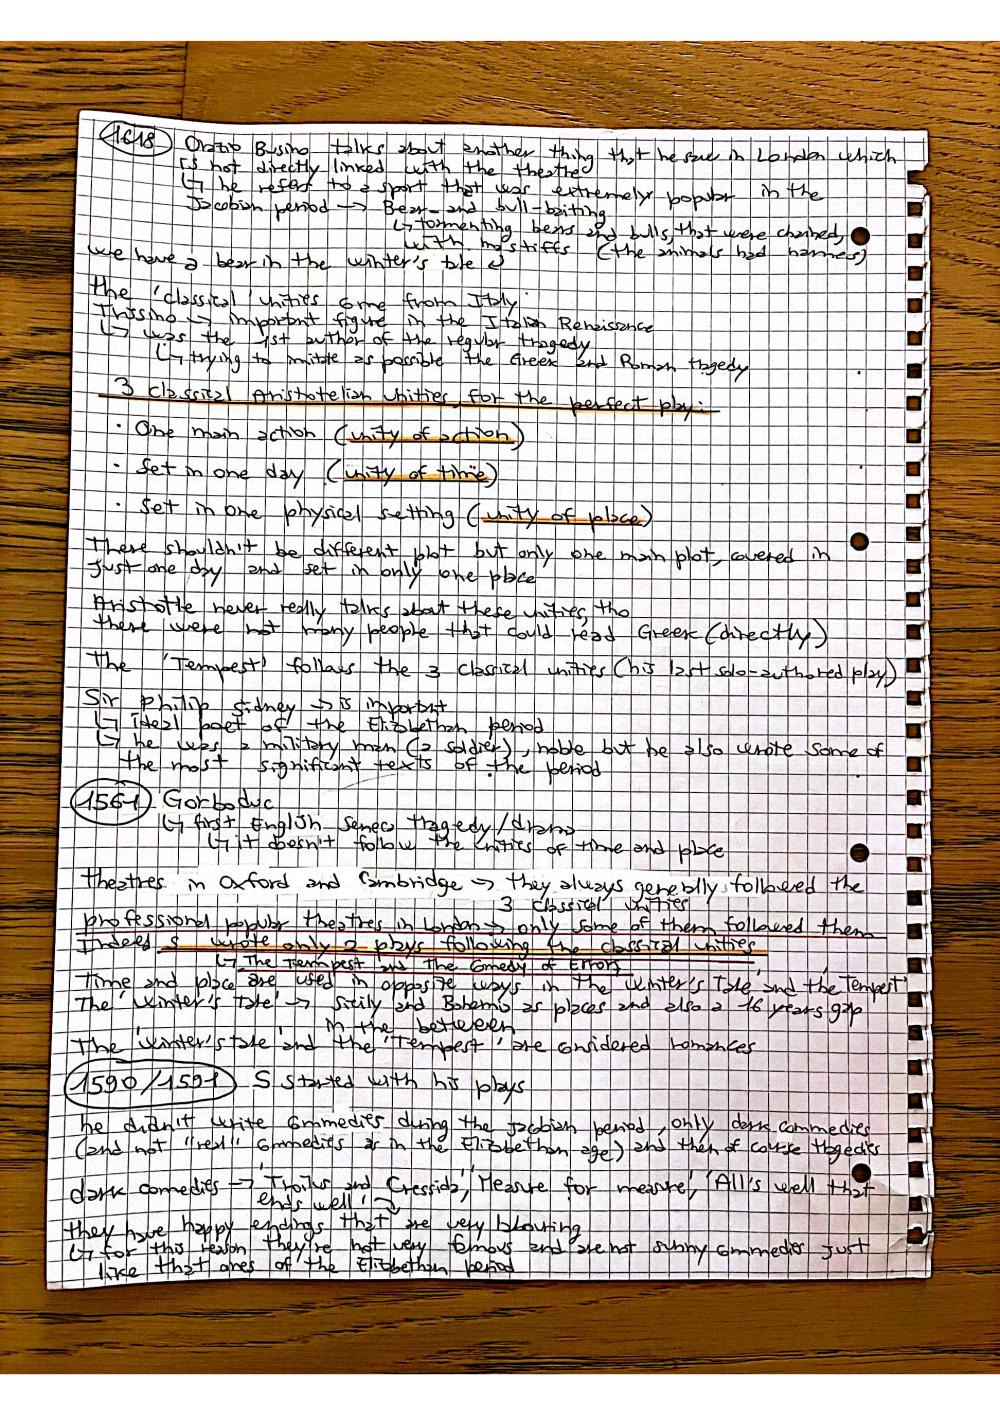 1618 Oratio Busino talks about another thing that he saw in London which
is not directly linked with the theatre
↳ he refers to a sport that was extremely popular in the
Jacobian period → Bear- and bull-baiting
↳ tormenting bears and bulls, that were chained,
with mastiffs (the animals had names)
we have a bear in the winter's tale
the 'classical' unities come from Italy:
Trissino → important figure in the Italian Renaissance
↳ was the 1st author of the regular tragedy
↳ trying to imitate as possible the Greek and Roman tragedy
3 classical Aristotelian unities, for the perfect play:
· One main action (unity of action)
· Set in one day (unity of time)
· Set in one physical setting (unity of place)
There shouldn't be different plot but only one main plot, covered in
just one day and set in only one place
Aristotle never really talks about these unities, tho
there were not many people that could read Greek (directly)
The 'Tempest' follows the 3 classical unities (his last solo-authored play)
Sir Philip Sidney → is important
↳ ideal poet of the Elizabethan period
↳ he was a military man (a soldier), noble but he also wrote some of
the most significant texts of the period
1561 Gorboduc
↳ first English Seneca tragedy/drama
↳ it doesn't follow the unities of time and place
theatres in Oxford and Cambridge → they always generally followed the
3 classical unities
professional popular theatres in London → only some of them followed them
Indeed S wrote only 2 plays following the classical unities
↳ The Tempest and The Comedy of Errors
Time and place are used in opposite ways in the 'Winter's Tale' and the 'Tempest'
The 'Winter's tale' → Sicily and Bohemia as places and also a 16 years gap
in the between
The 'Winter's tale' and the 'Tempest' are considered romances
1590/1591 S started with his plays
he didn't write commedies during the Jacobian period, only dark commedies
(and not "real" commedies as in the Elizabethan age) and then of course tragedies
dark comedies → 'Troilus and Cressida', 'Measure for measure', 'All's well that
ends well'
they have happy endings that are very blouring
↳ for this reason they're not very famous and are not sunny commedies just
like that ones of the Elizabethan period